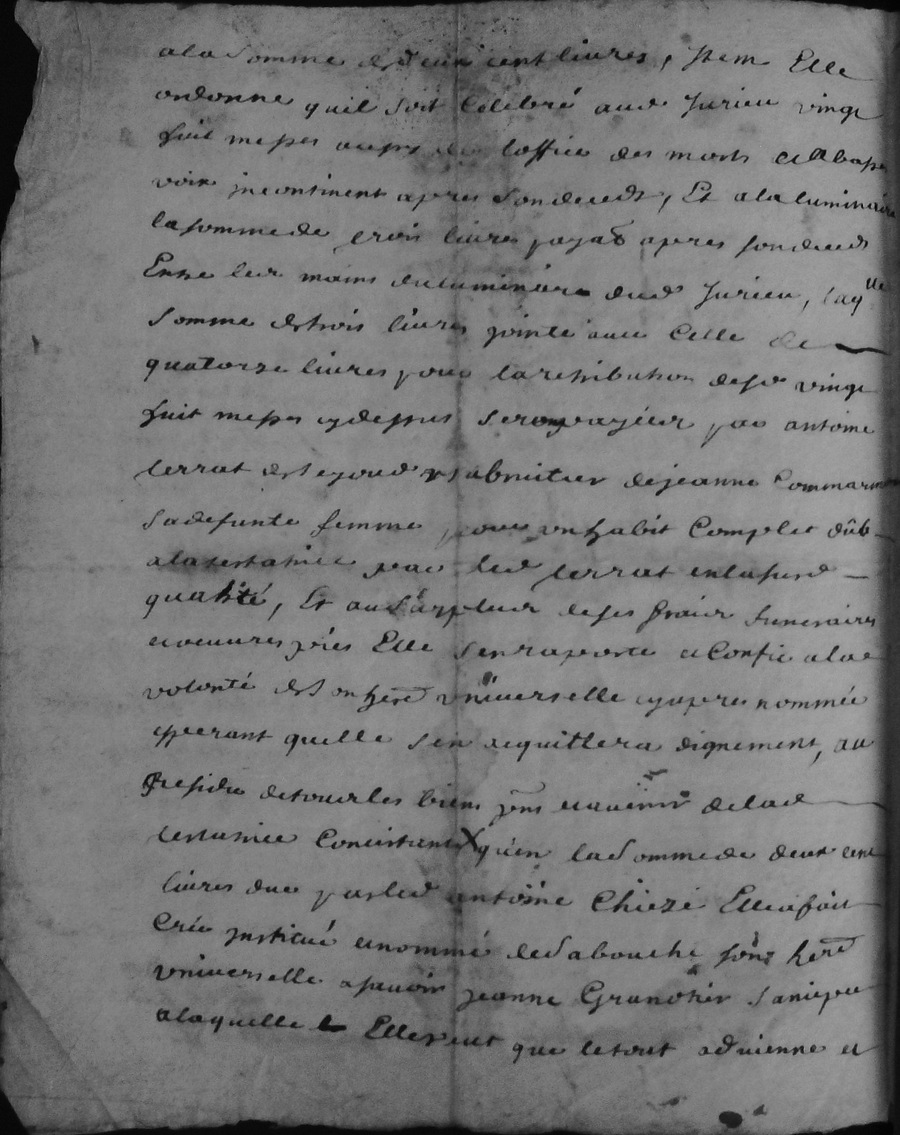 ala Somme de deux cent livres, Item Elle
ordonne quil soit Celebré aud Jurieu vingt
huit messes avec loffice des morts
voir incontinent apres Sondeceds, Et ala luminaire
lasomme de trois livres payab apres sondeceds
Entre les mains du luminier dud Jurieu, laq.lle
Somme de trois livres jointe avec Celle de
quatorze livres pour laretribution desd vingt
huit messes cydessus seront payées par antoine
terrat usufruitier dejeanne Commarm
Sadefunte femme pour un habit Complet dûb
alatestatrice par led terrat enlasusd
qualité, Et au Surplus deses frais funeraires
et oeuvres pies Elle Senraporte et Confie ala
volonté de Son here universelle cyapres nommée
esperant quelle Sen acquittera dignement, au
Residu detous les biens pns et avenir delad
testatrice Concistants X qu'en la Somme de deux cent
livres due parled antoine Chieze Elle a fait
Créé institué et nommé de Sabouche son here
universelle assavoir jeanne Granotier Saniepce
alaquelle Elle veut que letout advienne et